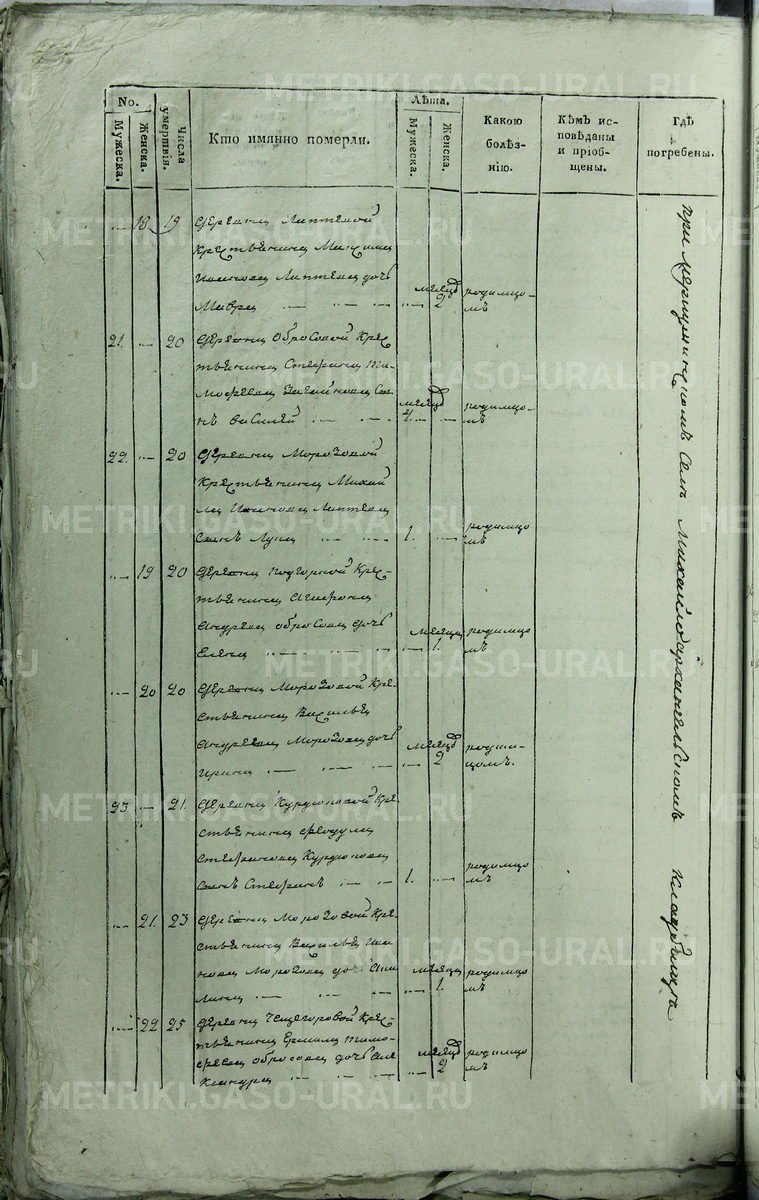 No.
Мужеска.
Женска.
Числа умертвія.
Кто имянно померли.
Лѣта.
Мужеска.
Женска.
Какою
болѣз-
нію.
Кѣмъ ис-
повѣданы
и пріоб-
щены.
Гдѣ
погребены.
18 19 Деревни Лаптевой
крестьянина
Лаптева дочь
Мавра месяцъ 2 родимцо-
мъ
21. 20 Деревни Обросовой Кре-
стьянина Стефана Ти-
мофеева сы-
нъ Василей месяцъ 4. родимцо-
мъ
22. 20 Деревни Морозовой
Крестьянина Михаи-
ла Лаптева
сынъ Лука 1. родимцо
мъ
19 20 Деревни Подгорной Кре-
стьянина
Андреева Обросова дочь
Елена месяца 1. родимцо
мъ
20 20 Деревни Морозовой Кре-
стьянина Василья
Андреева Морозова дочь
Ирина месяцъ 2 родим-
цомъ.
23 21. Деревни Курдюковой Кре-
стьянина Феодула
Стефанова Курдюкова
сынъ Стефанъ 1. родимцо
мъ
21. 23 Деревни Морозовой Кре-
стьянина Василья Ива-
нова Морозова дочь
месяца 1. родимцо
мъ
22 25 Деревни Крес-
тьянина Ермила Тимо-
феева Обросова дочь Але
ксандра месяцъ 2 родимцо
мъ
при селе Михайлоархангельскомъ кладбище
METRIKI.GASO-URAL.RU